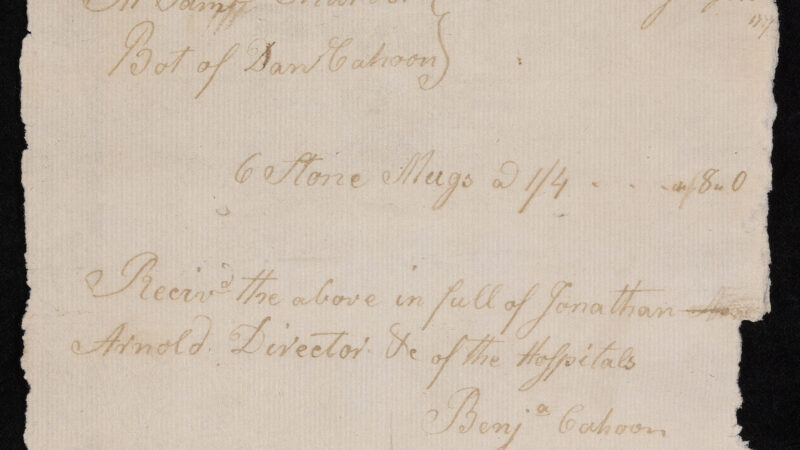 Bot of Dan Cahoon
6 Stone Mugs a 1/4 - - - 8 " 0
Reciv^d the above in full of Jonathan
Arnold Director &c of the Hospitals
Benj^a Cahoon